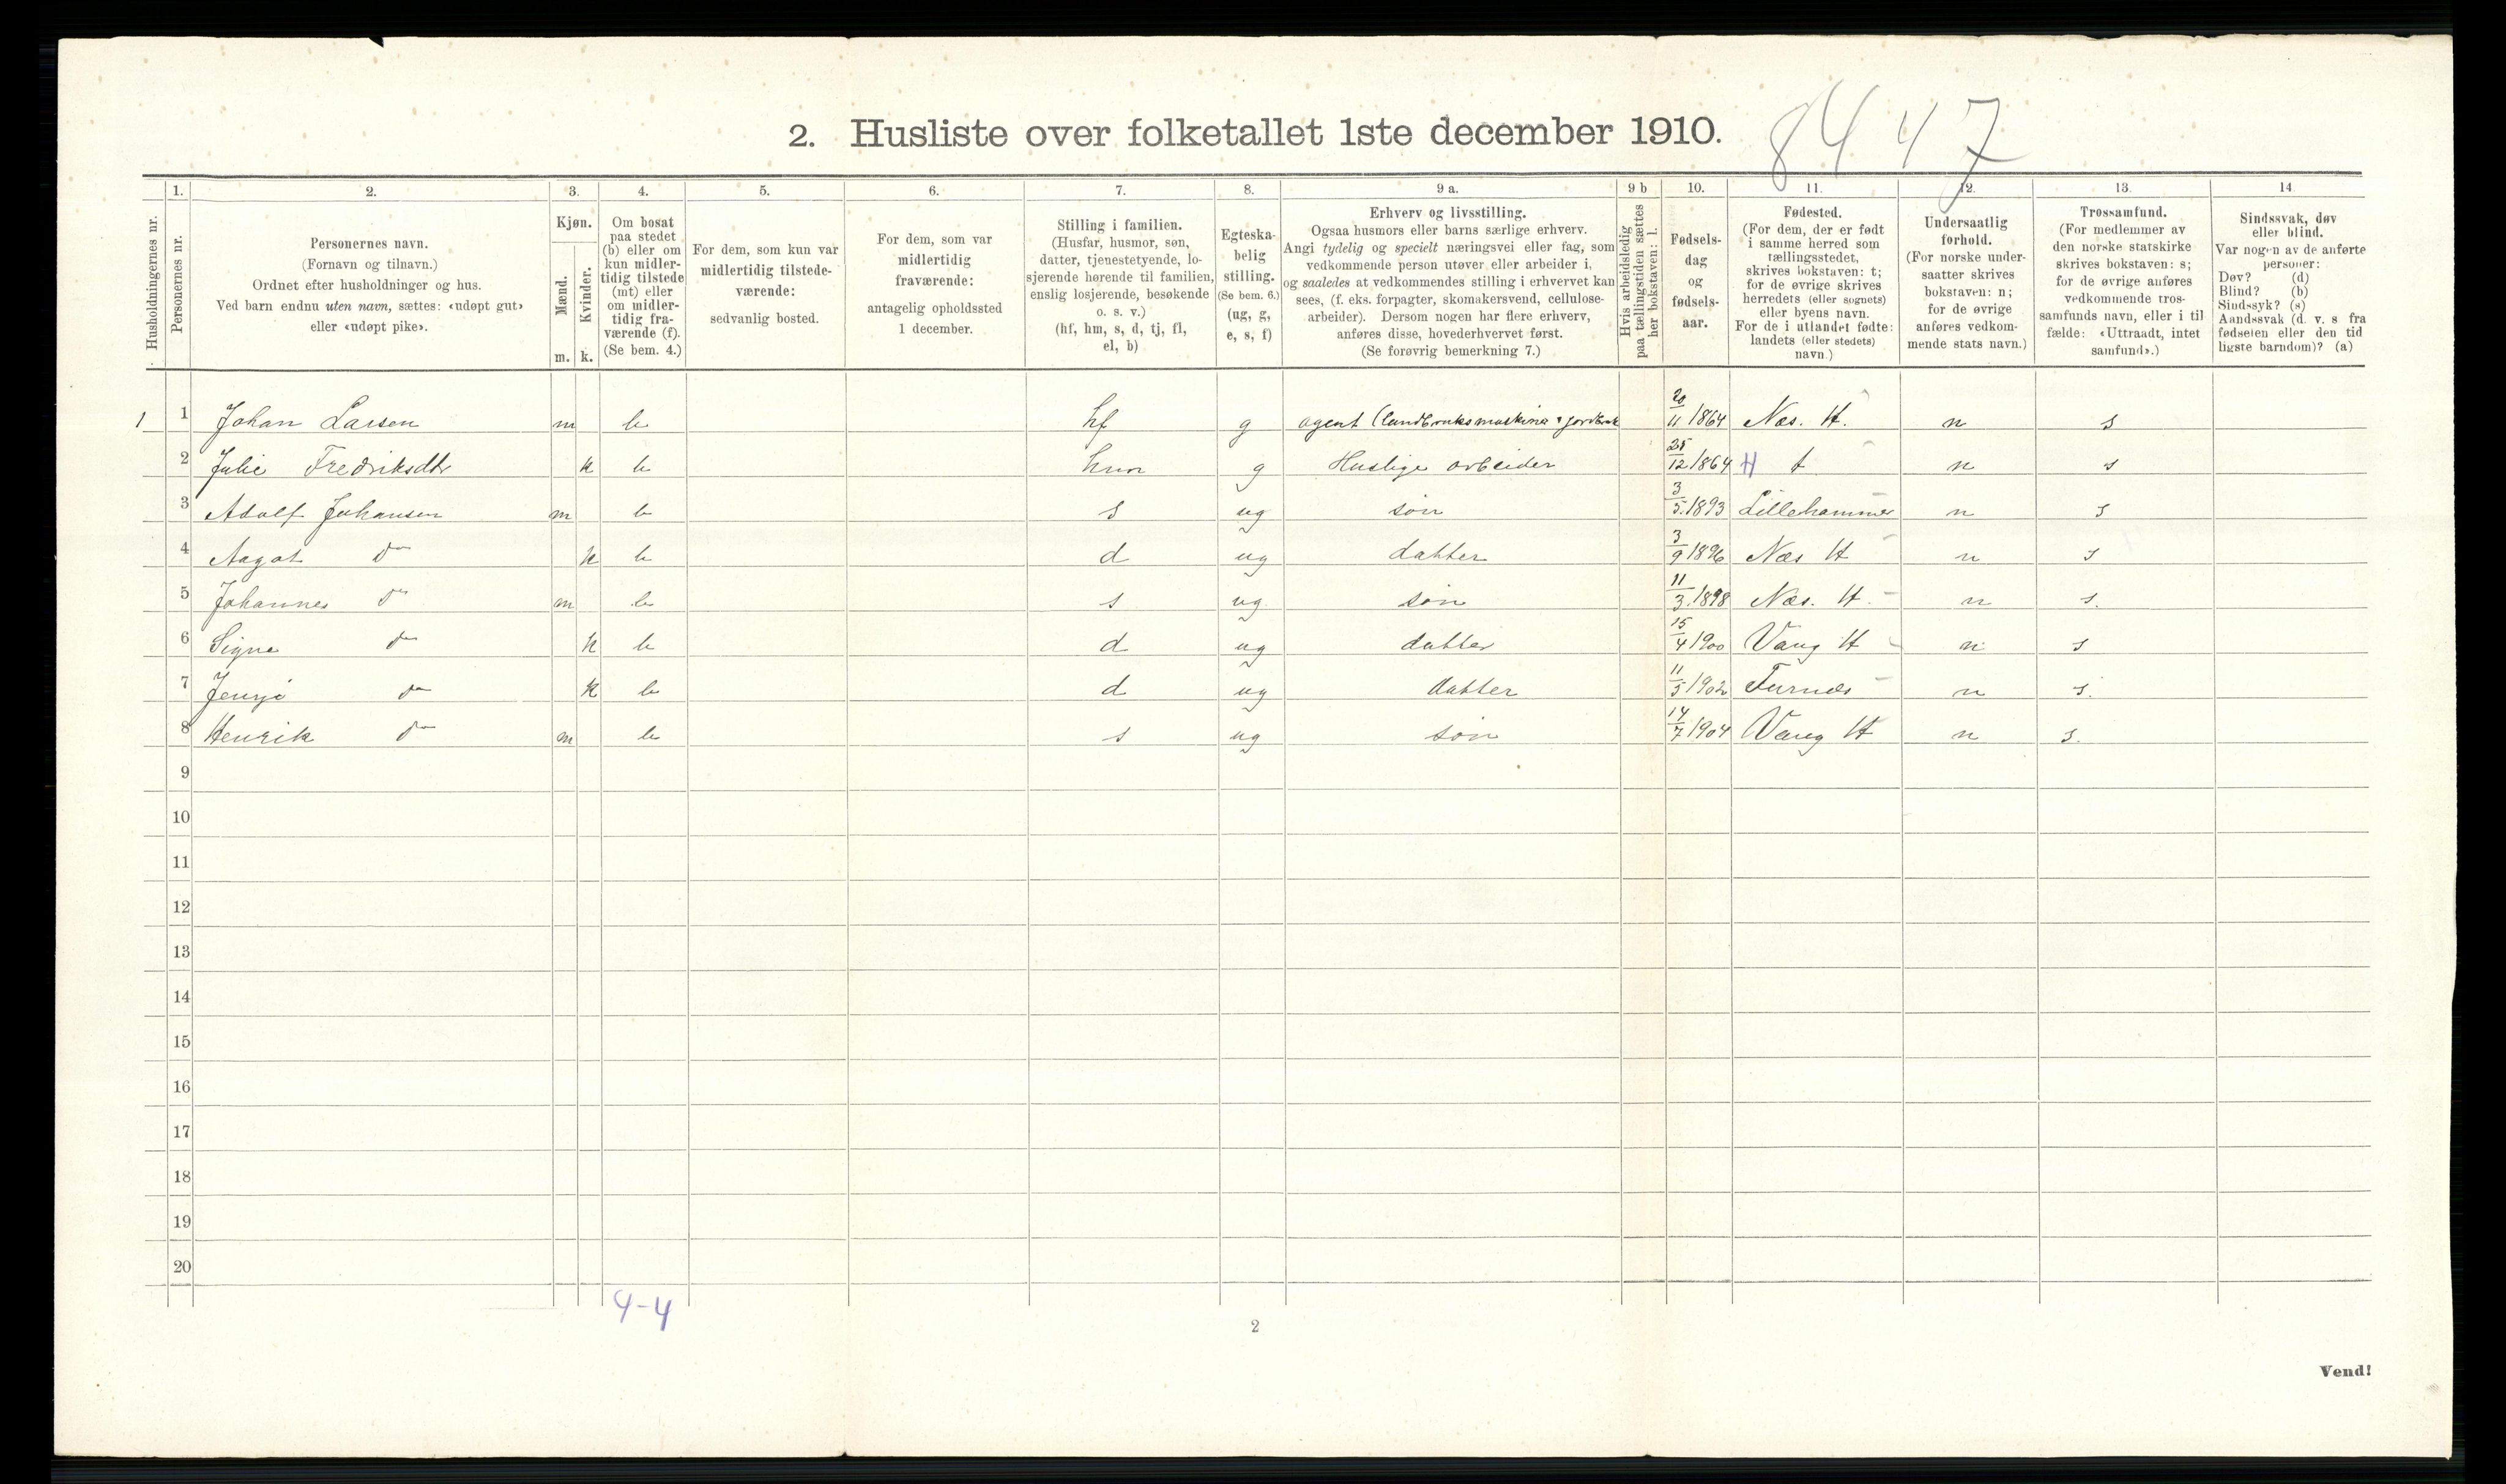 8447
2. Husliste over folketallet 1ste december 1910.
1. 2. 3. 4. 5. 6. 7. 8. 9 a. 9 b 10. 11. 12. 13. 14
Husholdningernes nr.
Personernes nr.
Personernes navn.
(Fornavn og tilnavn.)
Ordnet efter husholdninger og hus.
Ved barn endnu uten navn, sættes: «udøpt gut»
eller «udøpt pike».
Kjøn.
Mænd.
Kvinder.
m. k.
Om bosat
paa stedet
(b) eller om
kun midler-
tidig tilstede
(mt) eller
om midler-
tidig fra-
værende (f).
(Se bem. 4.)
For dem, som kun var
midlertidig tilstede-
værende:
sedvanlig bosted.
For dem, som var
midlertidig
fraværende:
antagelig opholdssted
1 december.
Stilling i familien.
(Husfar, husmor, søn,
datter, tjenestetyende, lo-
sjerende hørende til familien,
enslig losjerende, besøkende
o. s. v.)
(hf, hm, s, d, tj, fl,
el, b)
Egteska-
belig
stilling.
(Se bem. 6.)
(ug, g,
e, s, f)
Erhverv og livsstilling.
Ogsaa husmors eller barns særlige erhverv.
Angi tydelig og specielt næringsvei eller fag, som
vedkommende person utøver eller arbeider i,
og saaledes at vedkommendes stilling i erhvervet kan
sees, (f. eks. forpagter, skomakersvend, cellulose-
arbeider). Dersom nogen har flere erhverv,
anføres disse, hovederhvervet først.
(Se forøvrig bemerkning 7.)
Hvis arbeidsledig
paa tællingstiden sættes
her bokstaven: l.
Fødsels-
dag
og
fødsels-
aar.
Fødested.
(For dem, der er født
i samme herred som
tællingsstedet,
skrives bokstaven: t;
for de øvrige skrives
herredets (eller sognets)
eller byens navn.
For de i utlandet fødte:
landets (eller stedets)
navn.)
Undersaatlig
forhold.
(For norske under-
saatter skrives
bokstaven: n;
for de øvrige
anføres vedkom-
mende stats navn.)
Trossamfund.
(For medlemmer av
den norske statskirke
skrives bokstaven: s;
for de øvrige anføres
vedkommende tros-
samfunds navn, eller i til
fælde: «Uttraadt, intet
samfund».)
Sindssvak, døv
eller blind.
Var nogen av de anførte
personer:
Døv? (d)
Blind? (b)
Sindssyk? (s)
Aandssvak (d. v. s fra
fødselen eller den tid
ligste barndom)? (a)
1 1 Johan Larsen m b hf g agent (landbruksmaskiner & jordbruk 20/11 1864 Næs. H. n s
2 Julie Fredriksdtr k b hm g Huslige arbeider 25/12 1864 H t n s
3 Adolf Johansen m b s ug søn 3/5.1893 Lillehammer n s
4 Aagot do k b d ug datter 3/9 1896 Næs H n s
5 Johannes do m b s ug søn 11/3.1898 Næs. H. n s.
6 Signe do k b d ug datter 15/4 1900 Vang H n s
7 Jenye do k b d ug datter 11/5 1902 Furnæs n s.
8 Henrik do m b s ug søn 14/7 1904 Vang H n s.
9
10
11
12
13
14
15
16
17
18
19
20
4-4
2
Vend!